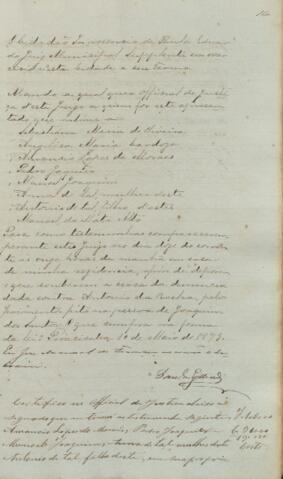 O Cidadão Innocencio de Paula Eduar
do Juiz Municipal Supplente em exer
cicio desta Cidade e seu Termo
Mando a qualquer Official de Justi
ça deste Juizo a quem for este apresen
tado que intime a
Sebastiana Maria de Oliveira
Angelica Maria Cardozo
Amancio Lopes de Moraes
Pedro Joaquim
Manoel Joaquim
Anna de tal, mulher deste
Antonio de tal, filho deste
Manoel da
Para como testemunhas comparecerem
perante este Juizo no dia dez do corren
te as onze horas da manhã em casa
de minha residencia, afim de depor
que souberem a cerca da denuncia
dada contra Antonio da Rocha, pelo
ferimento feito na pessoa de Joaquim
dos Santos. O que cumpra na forma
da lei. Piracicaba, 1º de Maio de 1873.
Eu
Paula Eduardo
Certifico eu Official de Justiça abaixo as
signado que
Amancio Lopes de Moraes, Pedro Joaquim
Manoel Joaquim, Anna de tal mulher deste
Antonio de tal filho deste, em sua propria